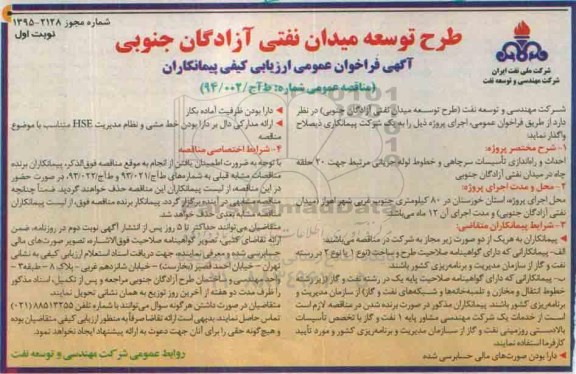 شماره مجوز ۲۱۲۸-۱۳۹۵
نوبت اول
شرکت ملی نفت ایران
شرکت مهندسی و توسعه نفت
طرح توسعه میدان نفتی آزادگان جنوبی
آگهی فراخوان عمومی ارزیابی کیفی پیمانکاران
(مناقصه عمومی شماره: ط‌آج/۹۴/۰۰۲)
شرکت مهندسی و توسعه نفت (طرح توسعه میدان نفتی آزادگان جنوبی) در نظر
دارد از طریق فراخوان عمومی، اجرای پروژه ذیل را به یک شرکت پیمانکاری ذیصلاح
واگذار نماید:
۱- شرح مختصر پروژه:
احداث و راه‌اندازی تأسیسات سرچاهی و خطوط لوله جریانی مرتبط جهت ۲۰ حلقه
چاه در میدان نفتی آزادگان جنوبی
۲- محل و مدت اجرای پروژه:
محل اجرای پروژه، استان خوزستان در ۸۰ کیلومتری جنوب غربی شهر اهواز (میدان
نفتی آزادگان جنوبی) و مدت اجرای آن ۱۲ ماه می‌باشد.
۳- شرایط پیمانکاران متقاضی:
پیمانکاران به هریک از دو صورت زیر مجاز به شرکت در مناقصه می‌باشند:
الف- پیمانکارانی که دارای گواهینامه صلاحیت طرح و ساخت (نوع ۱ یا نوع ۲) در رسته
نفت و گاز از سازمان مدیریت و برنامه‌ریزی کشور باشند.
ب- پیمانکارانی که دارای گواهینامه صلاحیت پایه یک در رشته نفت و گاز (زیررشته
خطوط انتقال و مخازن و تلمبه‌خانه‌ها و شبکه‌های نفت و گاز) از سازمان مدیریت و
برنامه‌ریزی کشور باشند. پیمانکاران مذکور در صورت برنده شدن در مناقصه لازم است
از خدمات یک شرکت مهندسی مشاور پایه ۱ نفت و گاز با تخصص تأسیسات
بالادستی روزمینی نفت و گاز از سازمان مدیریت و برنامه‌ریزی کشور و مورد تأیید
کارفرما استفاده نمایند.
دارا بودن صورت‌های مالی حسابرسی شده
دارا بودن ظرفیت آماده بکار
ارائه مدارکی دال بر دارا بودن خط مشی و نظام مدیریت HSE متناسب با موضوع
مناقصه
۴- شرایط اختصاصی مناقصه
با توجه به ضرورت اطمینان یافتن از انجام به موقع مناقصه فوق‌الذکر، پیمانکاران برنده
مناقصات مشابه قبلی به شماره‌های ط‌آج/۹۳/۰۲۱ و ط‌آج/۹۳/۰۲۲، در صورت حضور
در این مناقصه، از لیست پیمانکاران این مناقصه حذف خواهند گردید. ضمناً چنانچه
مناقصه مشابهی در آینده برگزار گردد، پیمانکار برنده مناقصه فوق، از لیست پیمانکاران
مناقصه مشابه بعدی حذف خواهد شد.
متقاضیان می‌توانند حداکثر تا ۵ روز پس از انتشار آگهی نوبت دوم در روزنامه، ضمن
ارائه تقاضای کتبی، تصویر گواهینامه صلاحیت فوق‌الاشاره، تصویر صورت‌های مالی
حسابرسی شده و معرفی نماینده، جهت دریافت اسناد استعلام ارزیابی کیفی به نشانی
تهران - خیابان احمد قصیر (بخارست) - خیابان شانزدهم غربی - پلاک ۸ - طبقه ۳ -
و ساختمان طرح آزادگان جنوبی مراجعه و پس از تکمیل، اسناد مذکور
را ظرف مدت دو هفته از آخرین روز توزیع به همان نشانی تحویل نمایند.
متقاضیان در صورت داشتن هرگونه سوال می‌توانند با شماره تلفن ۸۸۵۱۳۲۵۵(۰۲۱)
تماس حاصل نمایند. بدیهی است ارائه تقاضا صرفاً به منظور ارزیابی کیفی متقاضیان بوده
و هیچ‌گونه حقی را برای آنان جهت دعوت به ارائه پیشنهاد ایجاد نخواهد نمود.
روابط عمومی شرکت مهندسی و توسعه نفت